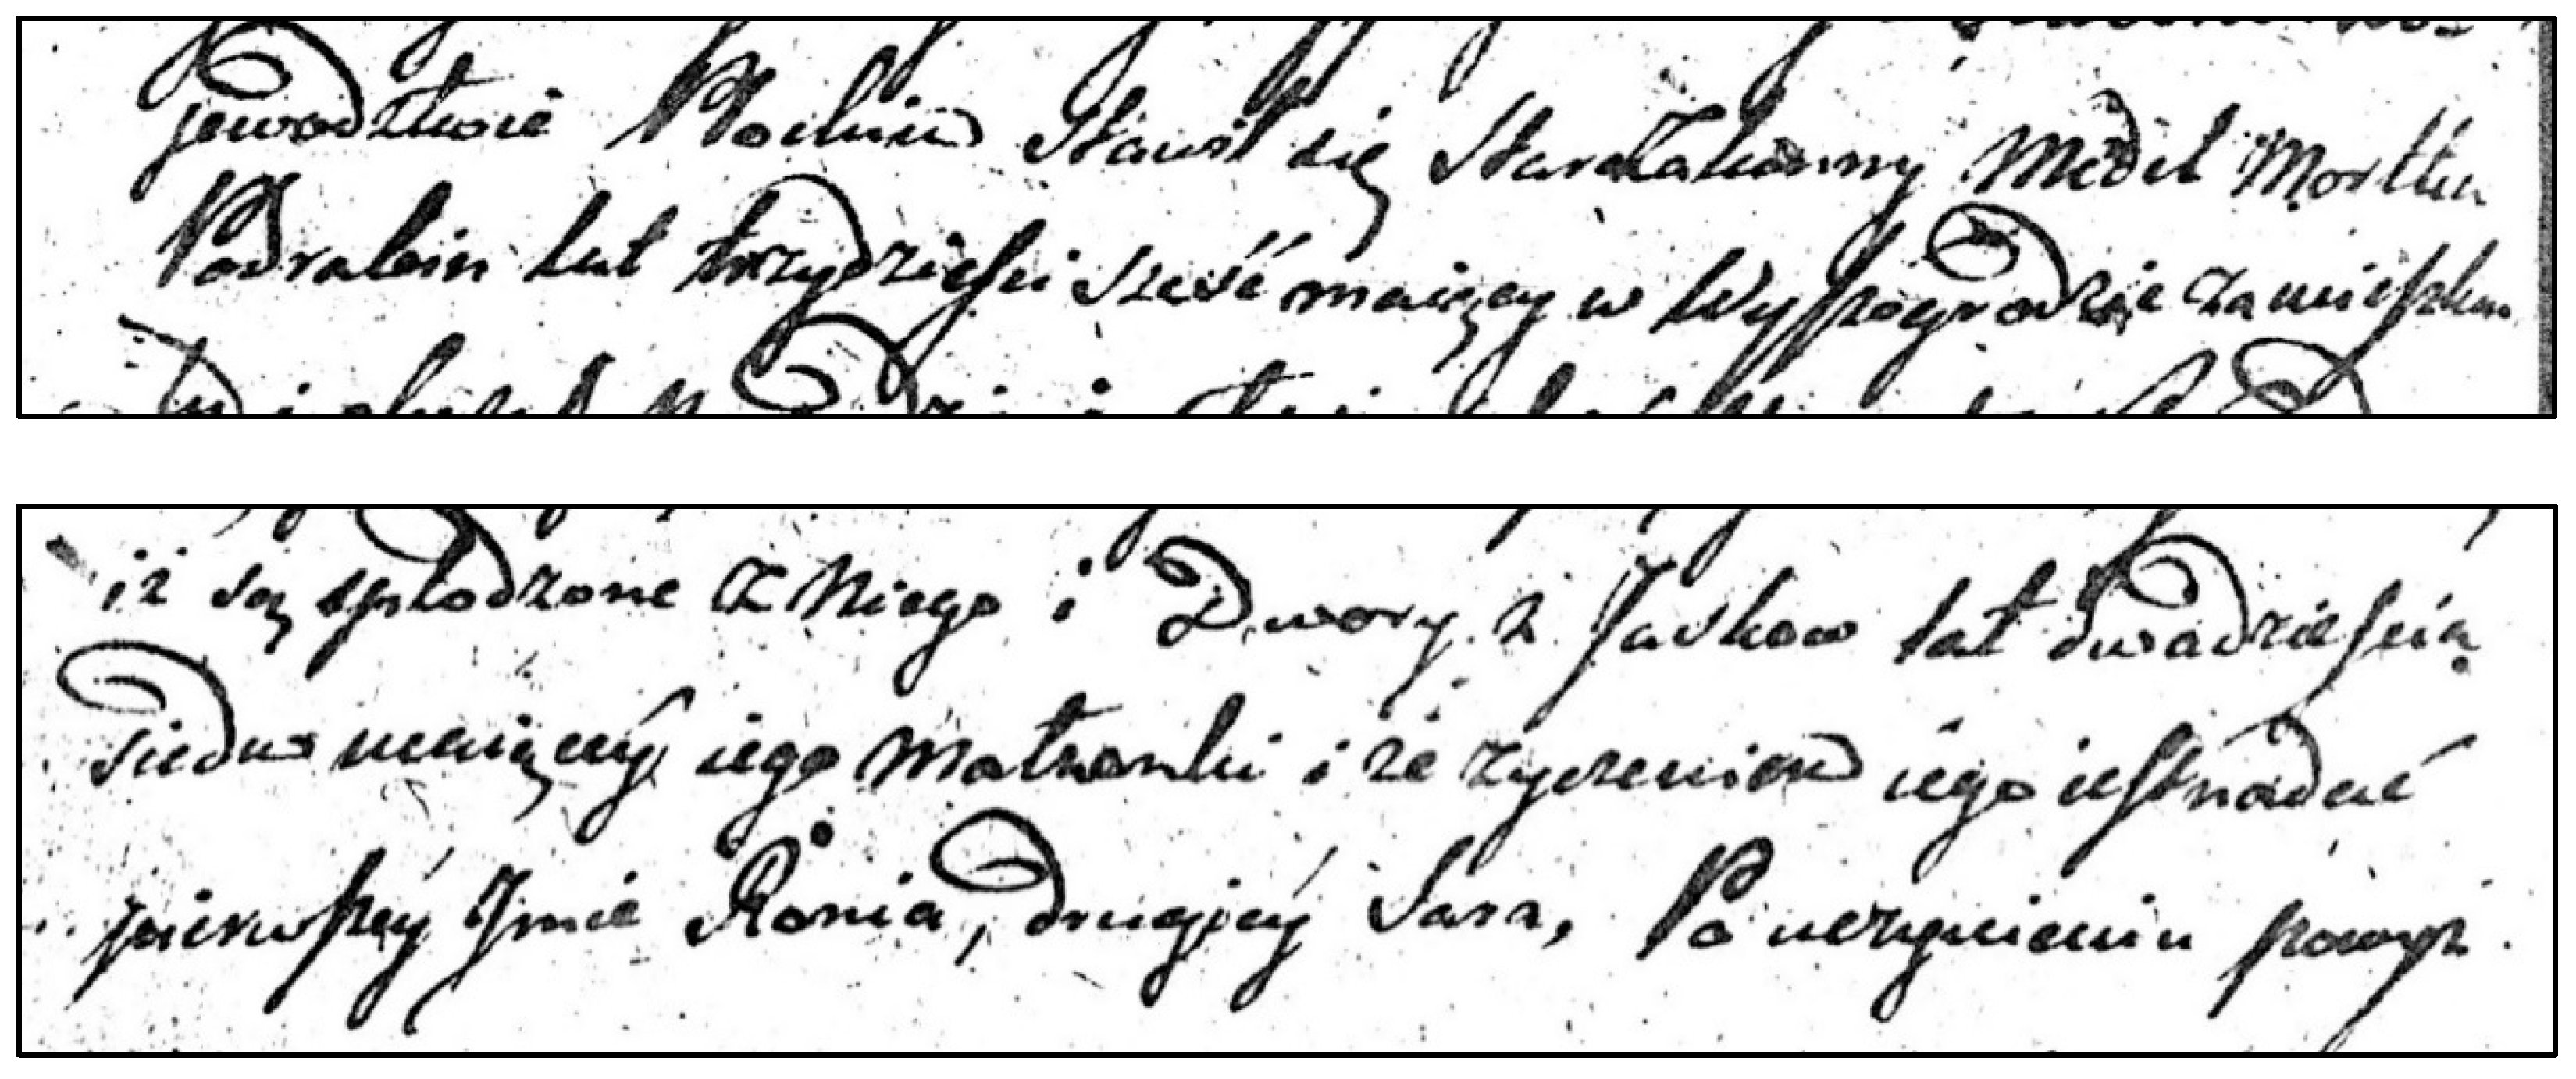 jewodztwie Płockim Stawił się Starozakonny Medel Mortku
Podrabin lat trzydzieści sześć maiący w Wyszogrodzie zamieszka
iż są spłodzone z Niego i Dwory z Jaskow lat dwadzieścia
siedm maiącey iego Małzonki i że życzeniem iego iest nadać
pierwszey Jmie Ronia, drugiey Sara, Po uczynieniu powyż